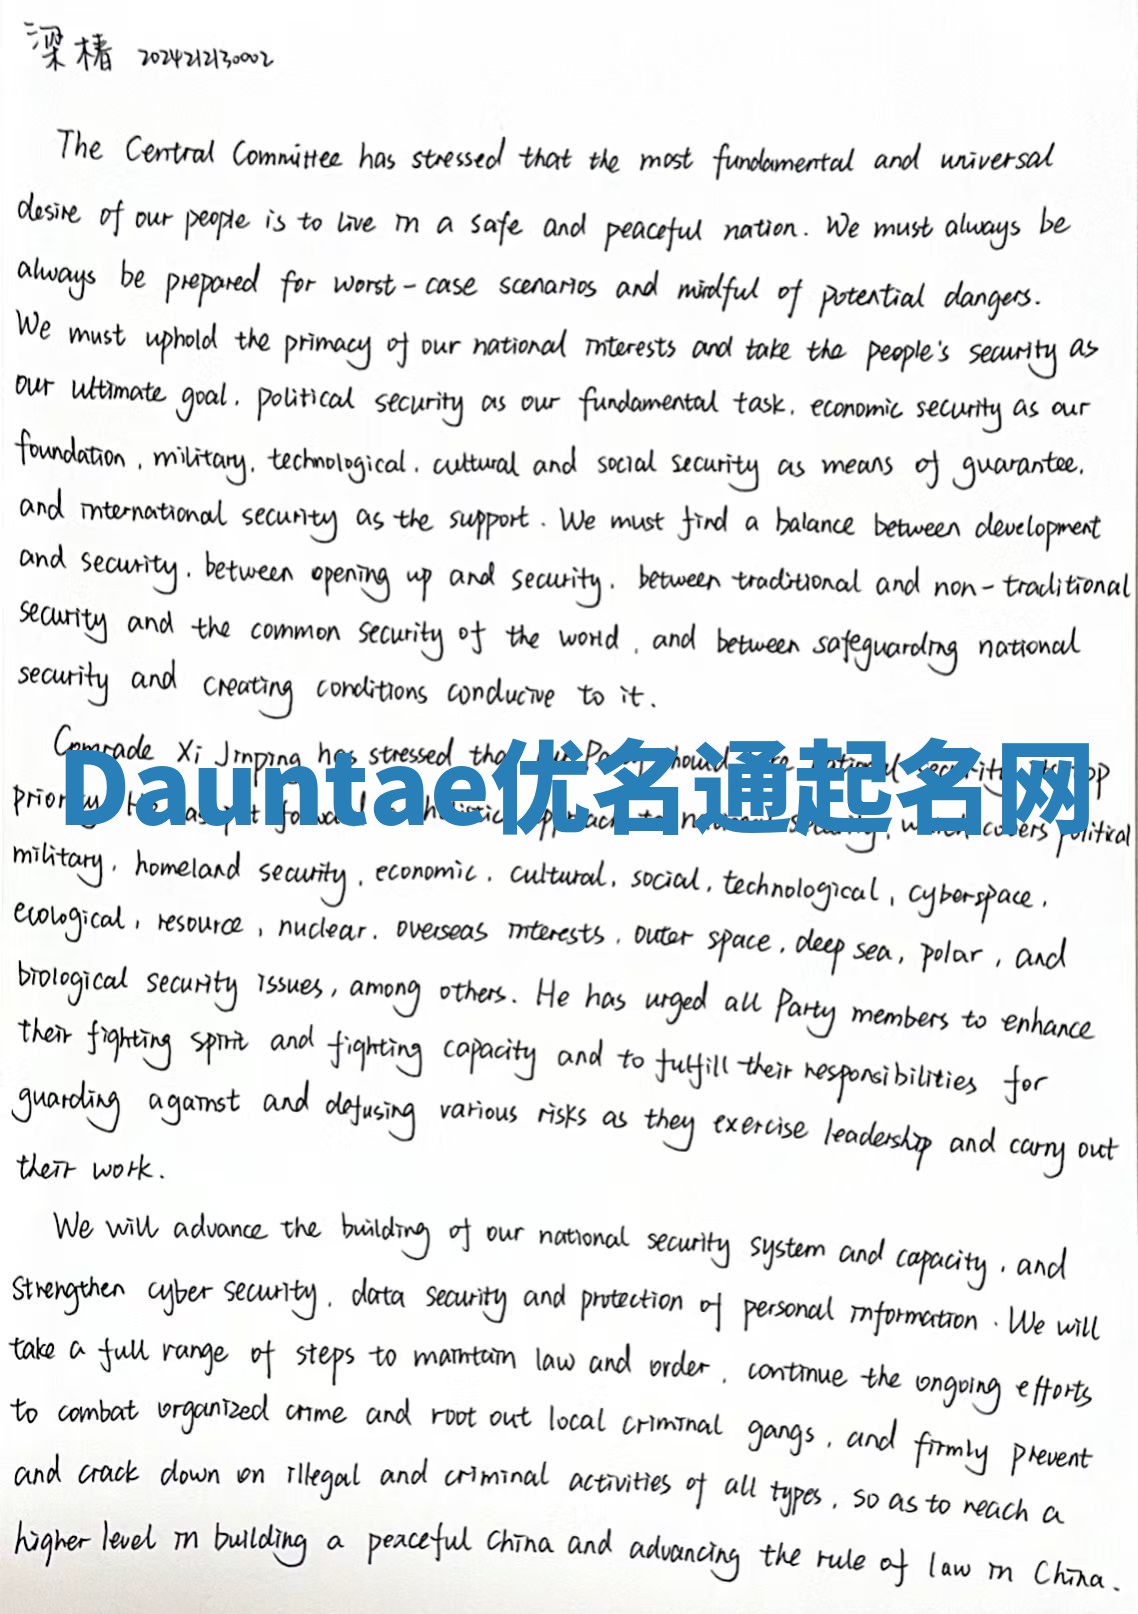 梁椿 2024212130002
The Central Committee has stressed that the most fundamental and universal
desire of our people is to live in a safe and peaceful nation. We must always be
always be prepared for worst-case scenarios and mindful of potential dangers.
We must uphold the primacy of our national interests and take the people's security as
our ultimate goal, political security as our fundamental task, economic security as our
foundation, military, technological, cultural and social security as means of guarantee,
and international security as the support. We must find a balance between development
and security, between opening up and security, between traditional and non-traditional
security and the common security of the world, and between safeguarding national
security and creating conditions conducive to it.
Comrade Xi Jinping has stressed
Dauntae优名通起名网
covers political
military, homeland security, economic, cultural, social, technological, cyberspace,
ecological, resource, nuclear, overseas interests, outer space, deep sea, polar, and
biological security issues, among others. He has urged all Party members to enhance
their fighting spirit and fighting capacity and to fulfill their responsibilities for
guarding against and defusing various risks as they exercise leadership and carry out
their work.
We will advance the building of our national security system and capacity, and
strengthen cyber security, data security and protection of personal information. We will
take a full range of steps to maintain law and order, continue the ongoing efforts
to combat organized crime and root out local criminal gangs, and firmly prevent
and crack down on illegal and criminal activities of all types, so as to reach a
higher level in building a peaceful China and advancing the rule of law in China.